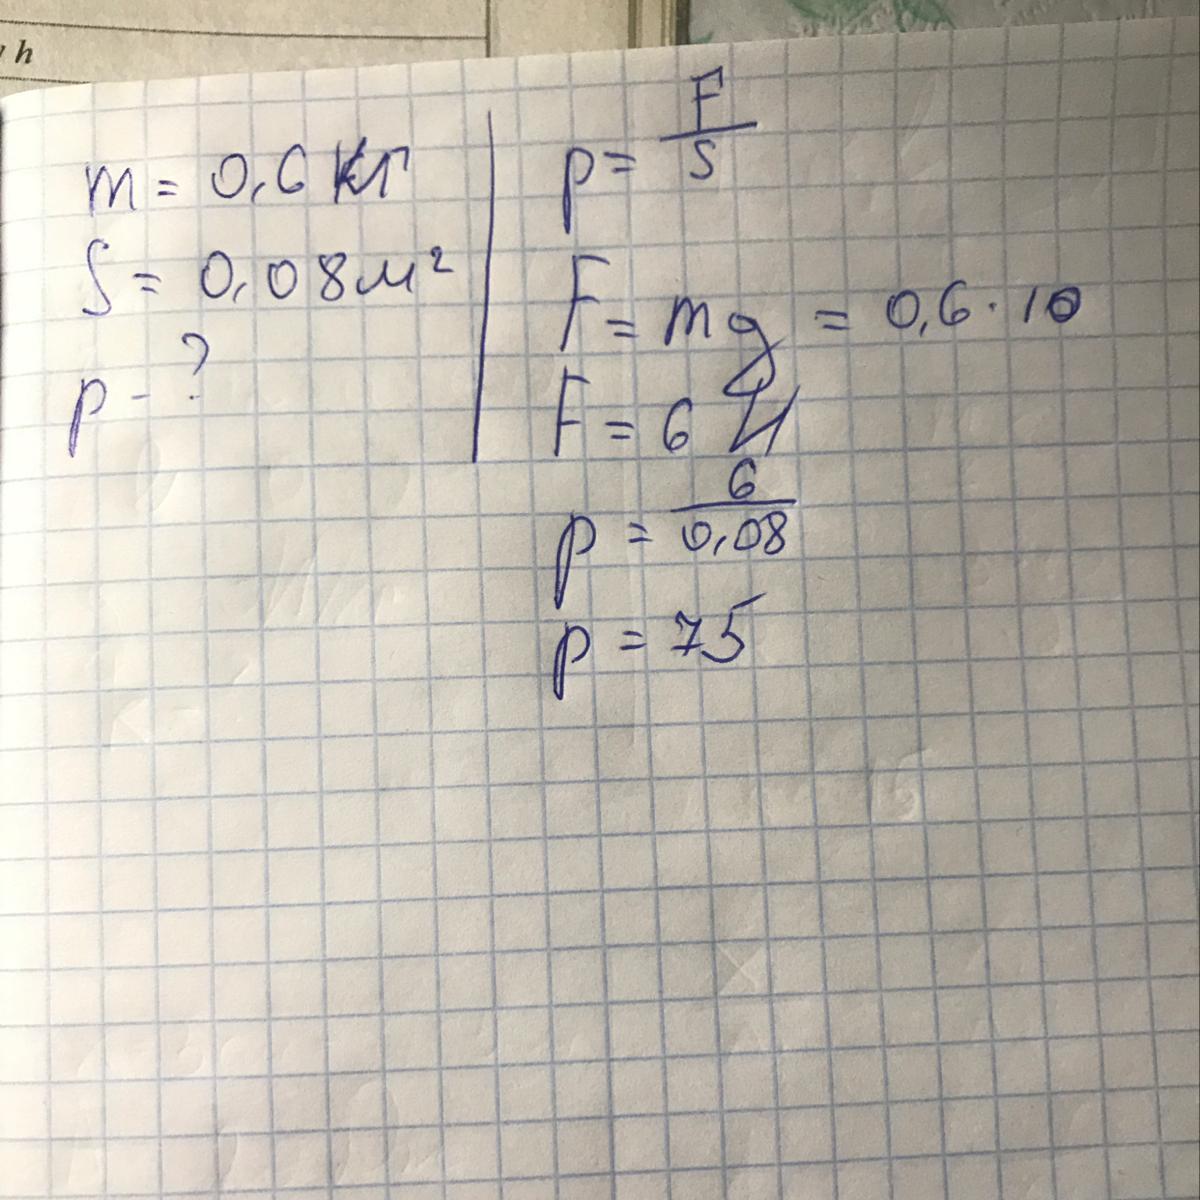 h
m = 0,6 кг
S = 0,08 м²
p - ?
p = F/S
F = mg = 0,6 · 10
F = 6 Н
p = 6/0,08
p = 75